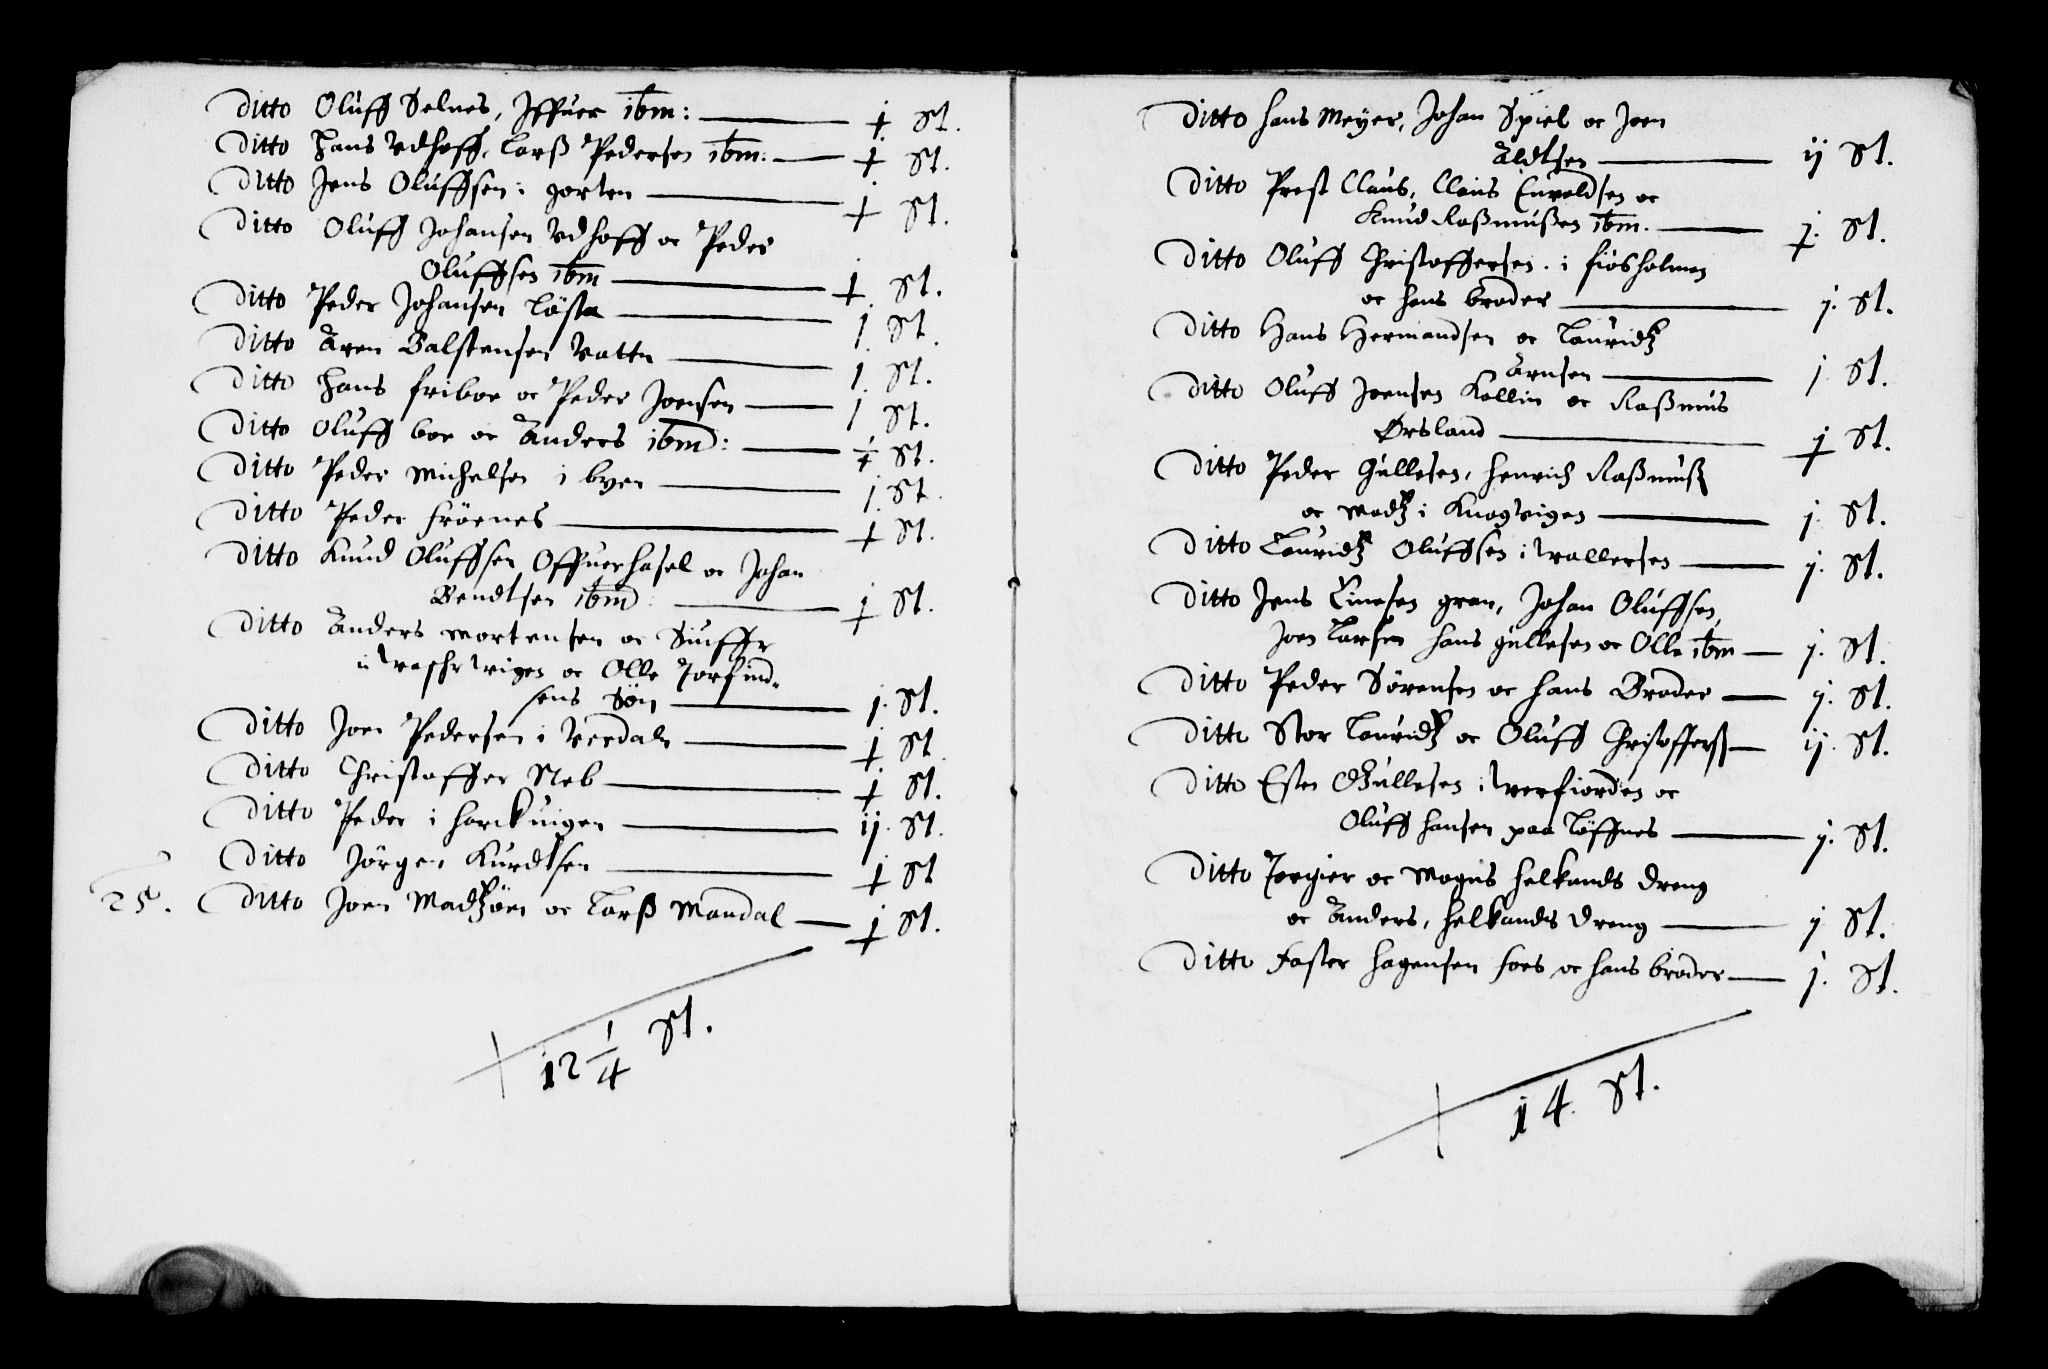 Ditto Oluff Selnes, Iffuer ibm: — ɉ St.
Ditto Hans Vdhoff, Larß Pedersen ibm: — ɉ St.
Ditto Jens Oluffsen i gorten — ɉ St.
Ditto Oluff Johansen Vdhoff oc Peder
Oluffsen ibm — ɉ St.
Ditto Peder Johansen Løsta — 1. St.
Ditto Aren Balstensen Vatn — 1. St.
Ditto Hans friboe oc Peder Joensen — 1 St.
Ditto Oluff boe oc Anders ibm: — 1/4 St.
Ditto Peder Michelsen i byen — j. St.
Ditto Peder Frøenes — ɉ St.
Ditto Knud Oluffsen Offuerhasel oc Johan
Bendtsen ibm: — ɉ St.
Ditto Anders Mortensen oc
oc Olle Torfind-
sens Søn — j. St.
Ditto Joen Pedersen i Verdaln — ɉ St.
Ditto Christoffer Neb — ɉ St.
Ditto Peder i horckuigen — ij. St.
Ditto Jørgen Kurdtsen — ɉ St
25. Ditto Joen Madtzøn oc Larß Mandal — ɉ St.
12 1/4 St.
Ditto hans Meyer, Johan Spiel oc Joen
Aldtsen — ij St.
Ditto Prest Claus, Claus Envoldsen oc
Knud Raßmußen ibm. — ɉ. St.
Ditto Oluff Christoffersen i fiøsholmen
oc hans broder — j. St.
Ditto Hans Hermandsen oc Lauridtz
Arnsen — j St.
Ditto Oluff Joensen Kollin oc Raßmus
Ørsland — ɉ St.
Ditto Peder Gullesen, Henrich Raßmußen
oc Madtz i Knogvigen — j. St.
Ditto Lauridtz Oluffsen i Vallersen — j. St.
Ditto Jens Einesen gran, Johan Oluffsen,
Joen Larsen hans gullesen oc Olle ibm — j. St.
Ditto Peder Sørensen oc hans Broder — j. St.
Ditto Stor Lauridtz oc Oluff Christofferß — ij. St.
Ditto Esten Gullesen i Verfiorden oc
Oluff hansen paa Løffnes — j. St.
Ditto Torgier oc Mogns helkands dreng
oc Anders, helkands dreng — j St.
Ditto Faster hagensen foes oc hans broder — j. St.
14. St.